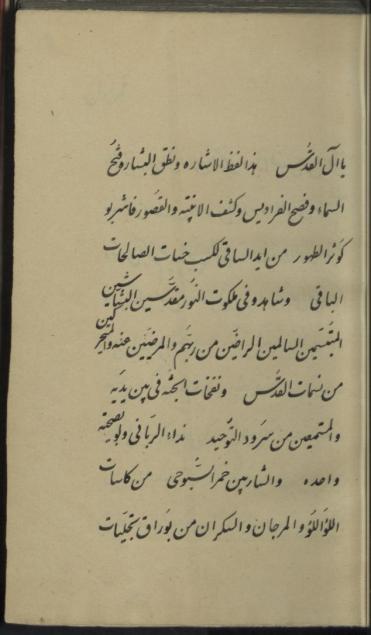 یا آل القدس هذا لفظ الاشاره ونطق البشاره وفتح
السماء وفصح الفرادیس وکشف الابنیته والقصور فاشربو
کوثر الطهور من اید الساقی لکسب حسنات الصالحات
الباقی وشاهدو فی ملکوت النور مقدسین
المتبسّمین السالمین الراضین من ربهم والمرضیین عنه
من نسمات القدس ونفحات الجنّه فی بین یدیه
والمستمعین من سرود التوحید نداء الربانی ولو بصیحة
واحده والشاربین خمر السبّوحی من کاسات
اللؤاللؤ والمرجان والسکران من بوراق تجلیات